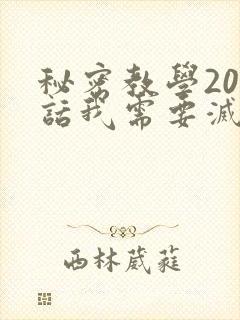 秘密教學20
話我需要減
西林葳蕤